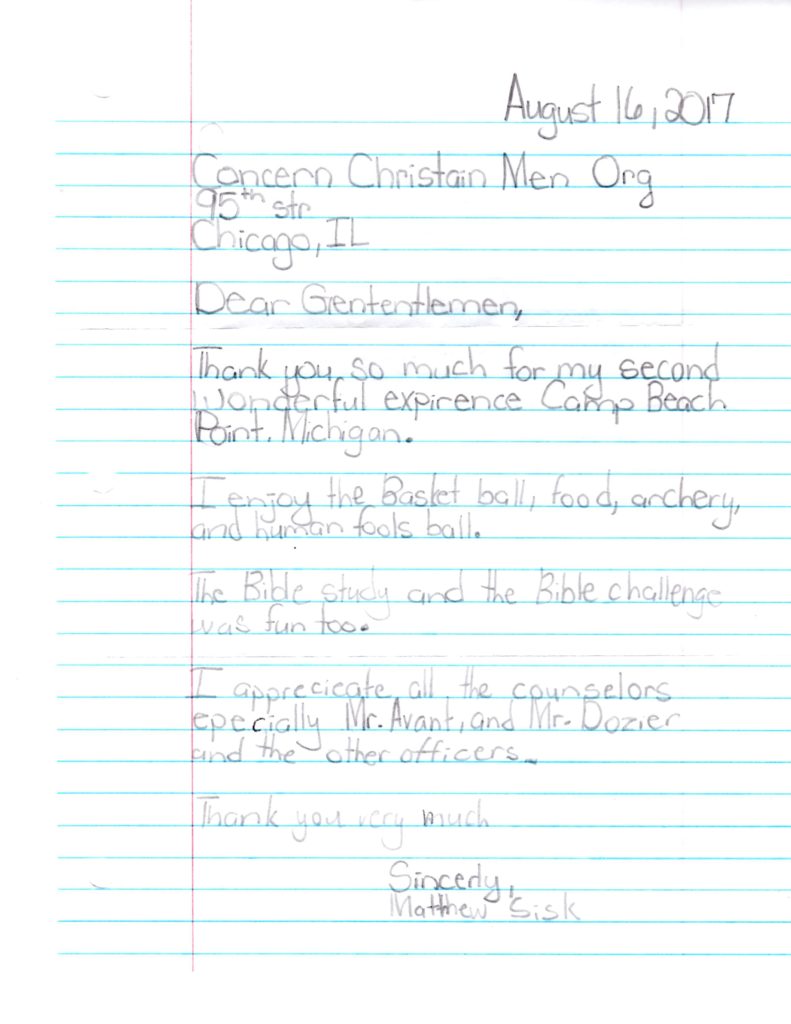 August 16, 2017
Concern Christain Men Org
95th str
Chicago, IL
Dear Gententlemen,
Thank you so much for my second
wonderful expirence Camp Beach
Point. Michigan.
I enjoy the Basket ball, food, archery,
and human fools ball.
The Bible study and the Bible challenge
was fun too.
I apprecicate all the counselors
epecially Mr. Avant, and Mr. Dozier
and the other officers.
Thank you very much
Sincerly,
Matthew Sisk